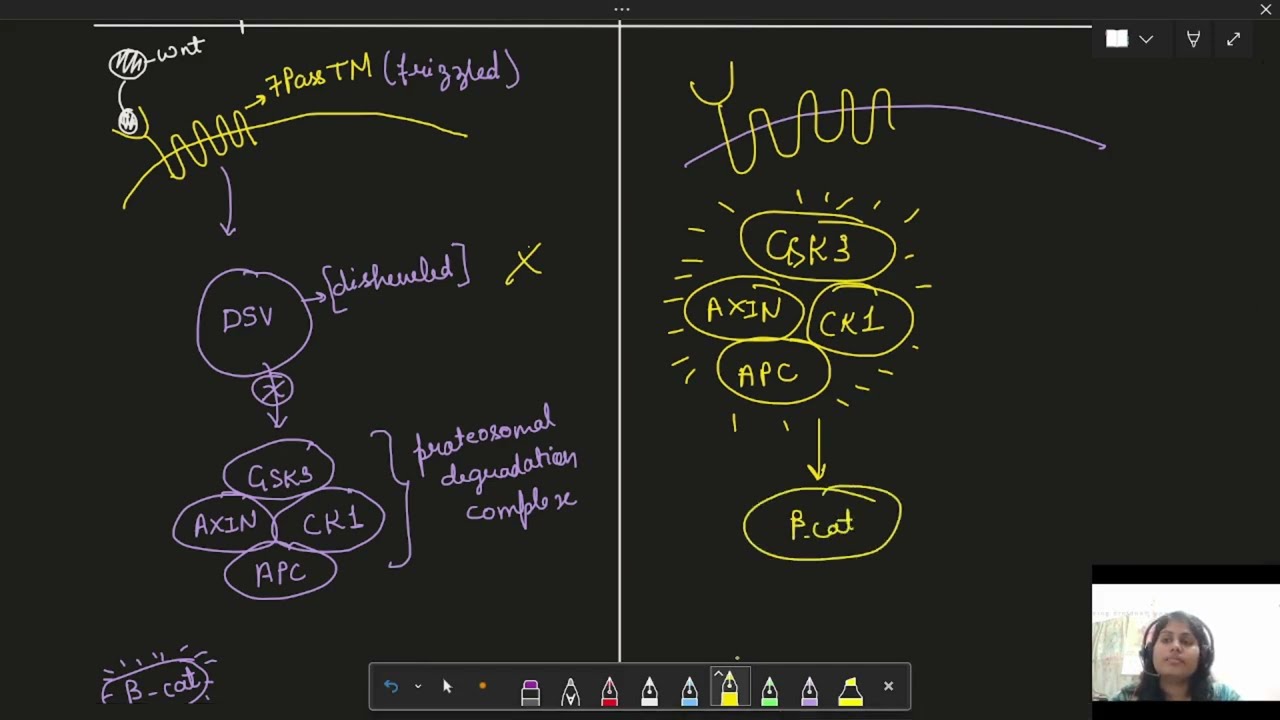 wnt
7Pass TM (frizzled)
DSV
[disheveled]
X
x
GSK3
AXIN
CK1
APC
proteosomal
degradation
complex
β-cat
GSK3
AXIN
CK1
APC
β-cat